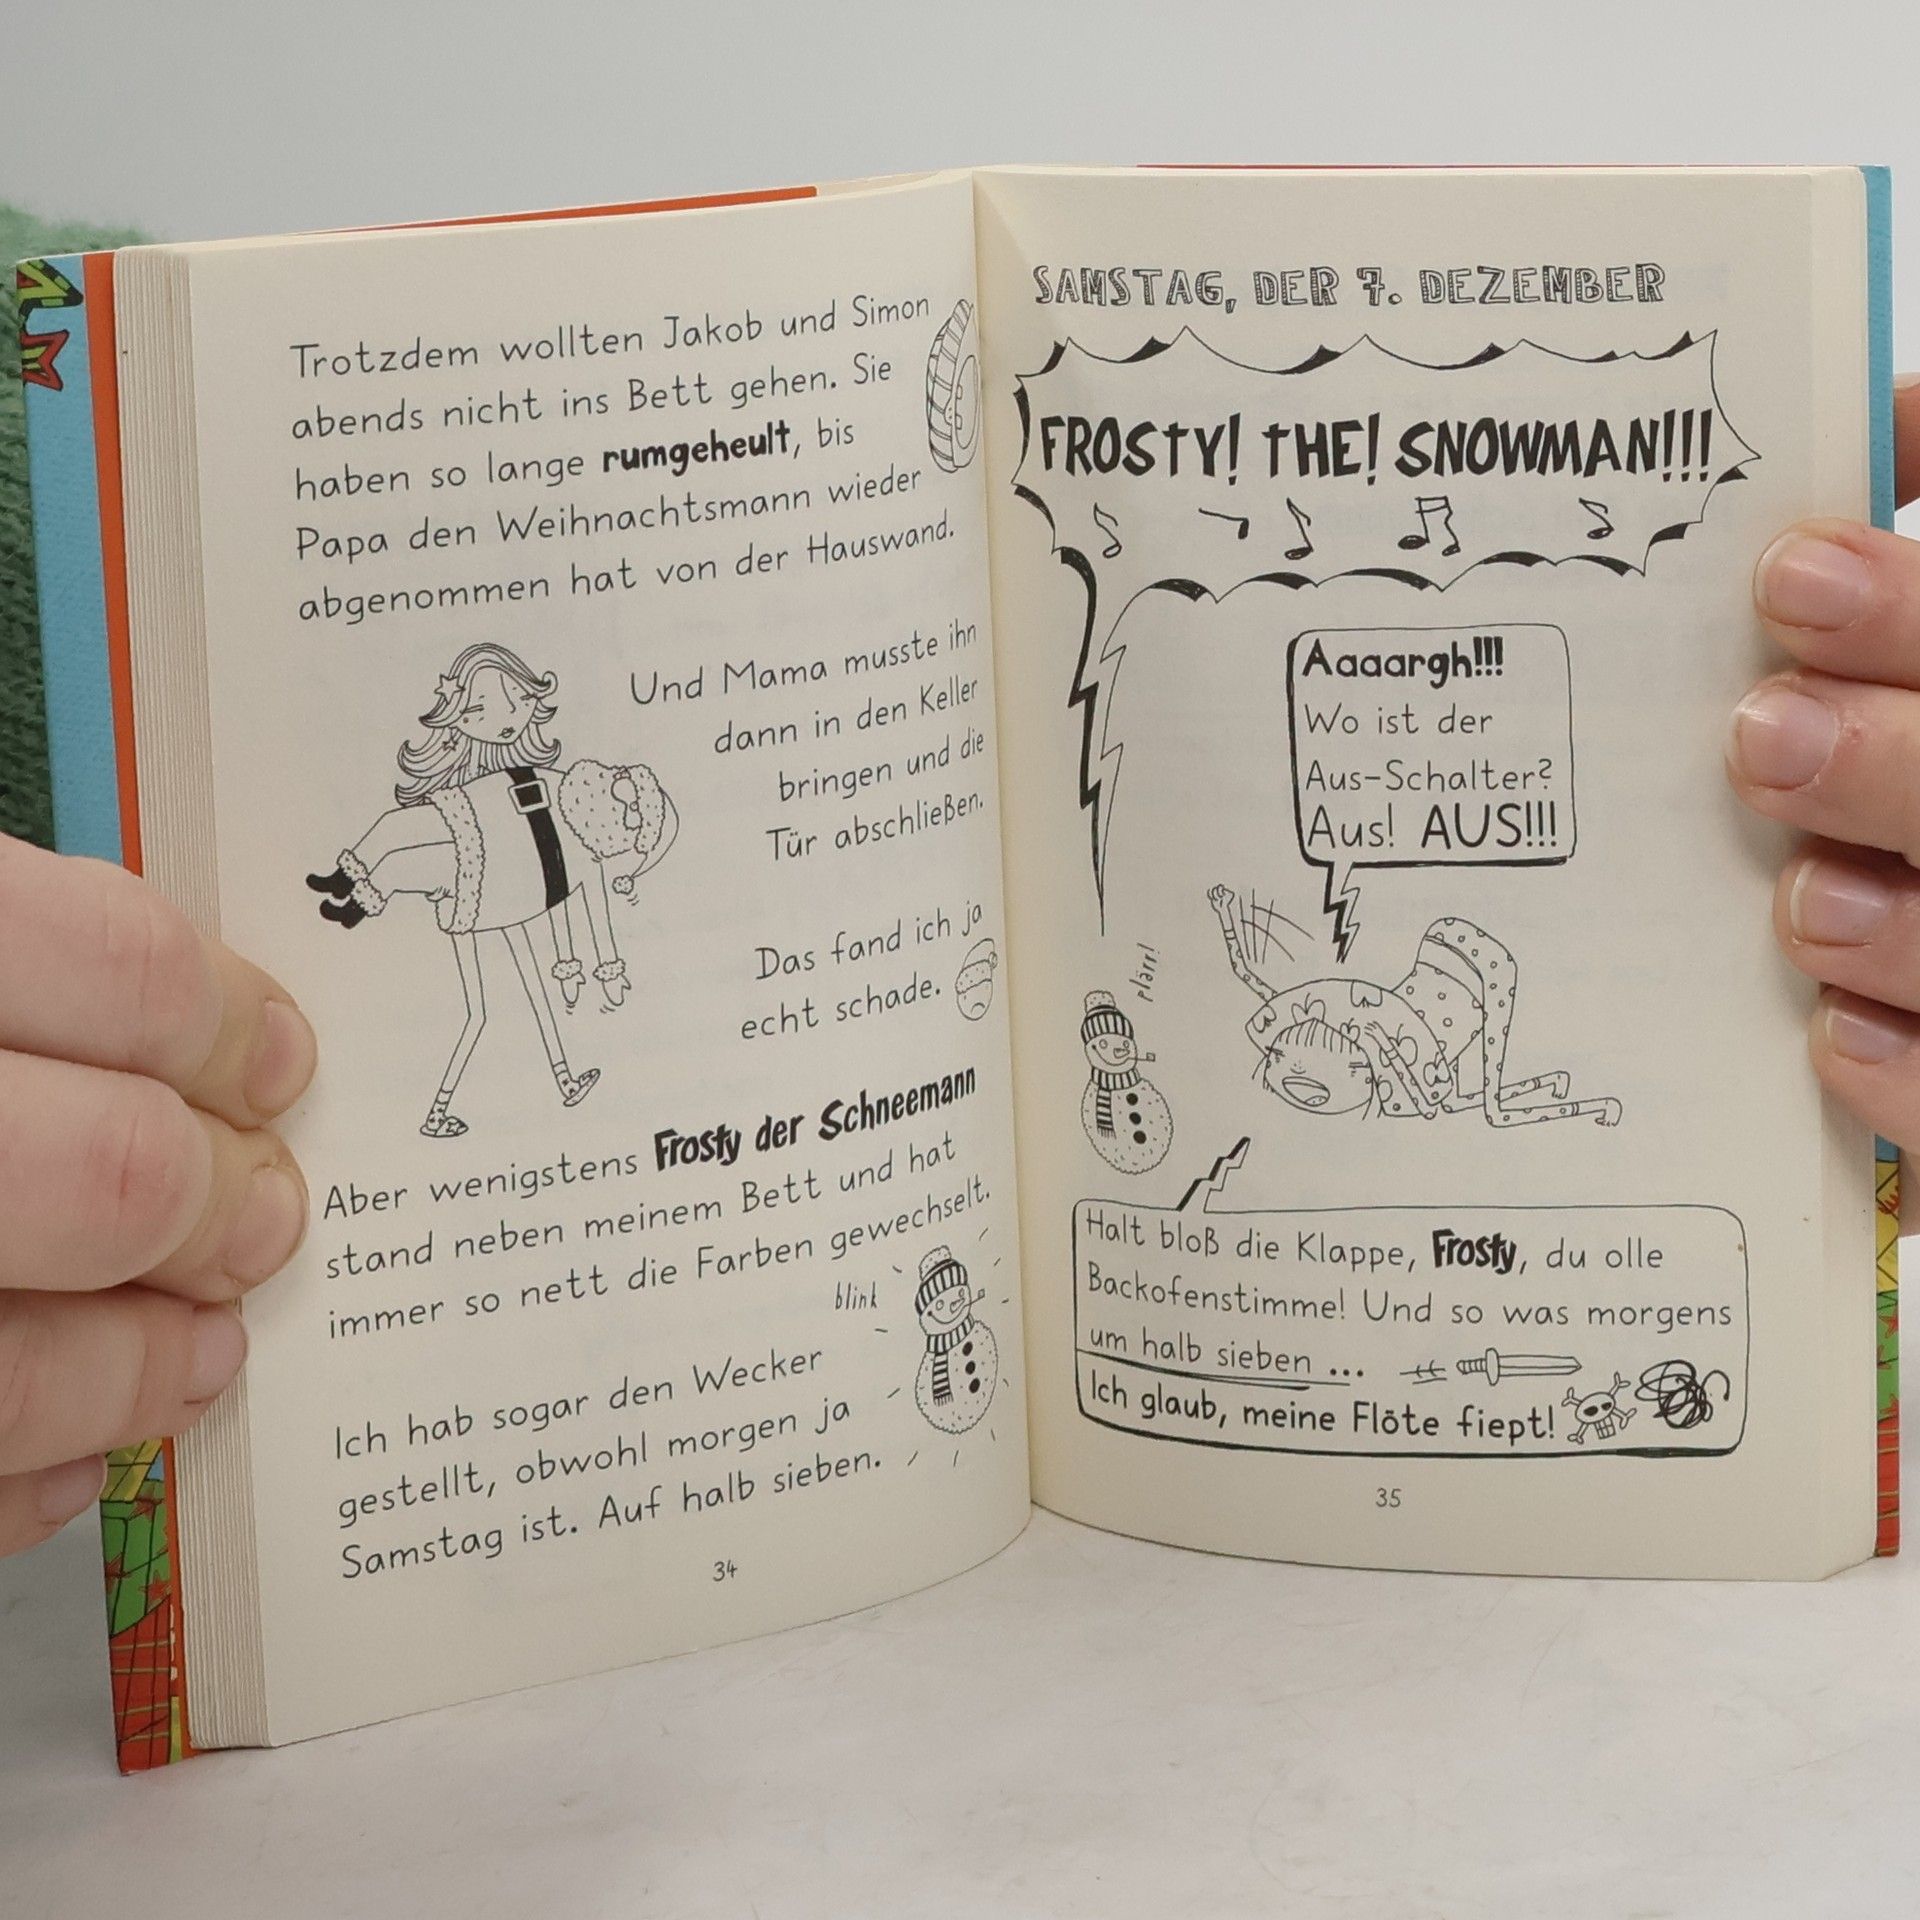 Trotzdem wollten Jakob und Simon
abends nicht ins Bett gehen. Sie
haben so lange rumgeheult, bis
Papa den Weihnachtsmann wieder
abgenommen hat von der Hauswand.
Und Mama musste ihn
dann in den Keller
bringen und die
Tür abschließen.
Das fand ich ja
echt schade.
Aber wenigstens Frosty der Schneemann
stand neben meinem Bett und hat
immer so nett die Farben gewechselt.
blink
Ich hab sogar den Wecker
gestellt, obwohl morgen ja
Samstag ist. Auf halb sieben.
34
SAMSTAG, DER 7. DEZEMBER
FROSTY! THE! SNOWMAN!!!
Aaaargh!!!
Wo ist der
Aus-Schalter?
Aus! AUS!!!
plärr!
Halt bloß die Klappe, Frosty, du olle
Backofenstimme! Und so was morgens
um halb sieben ...
Ich glaub, meine Flöte fiept!
35